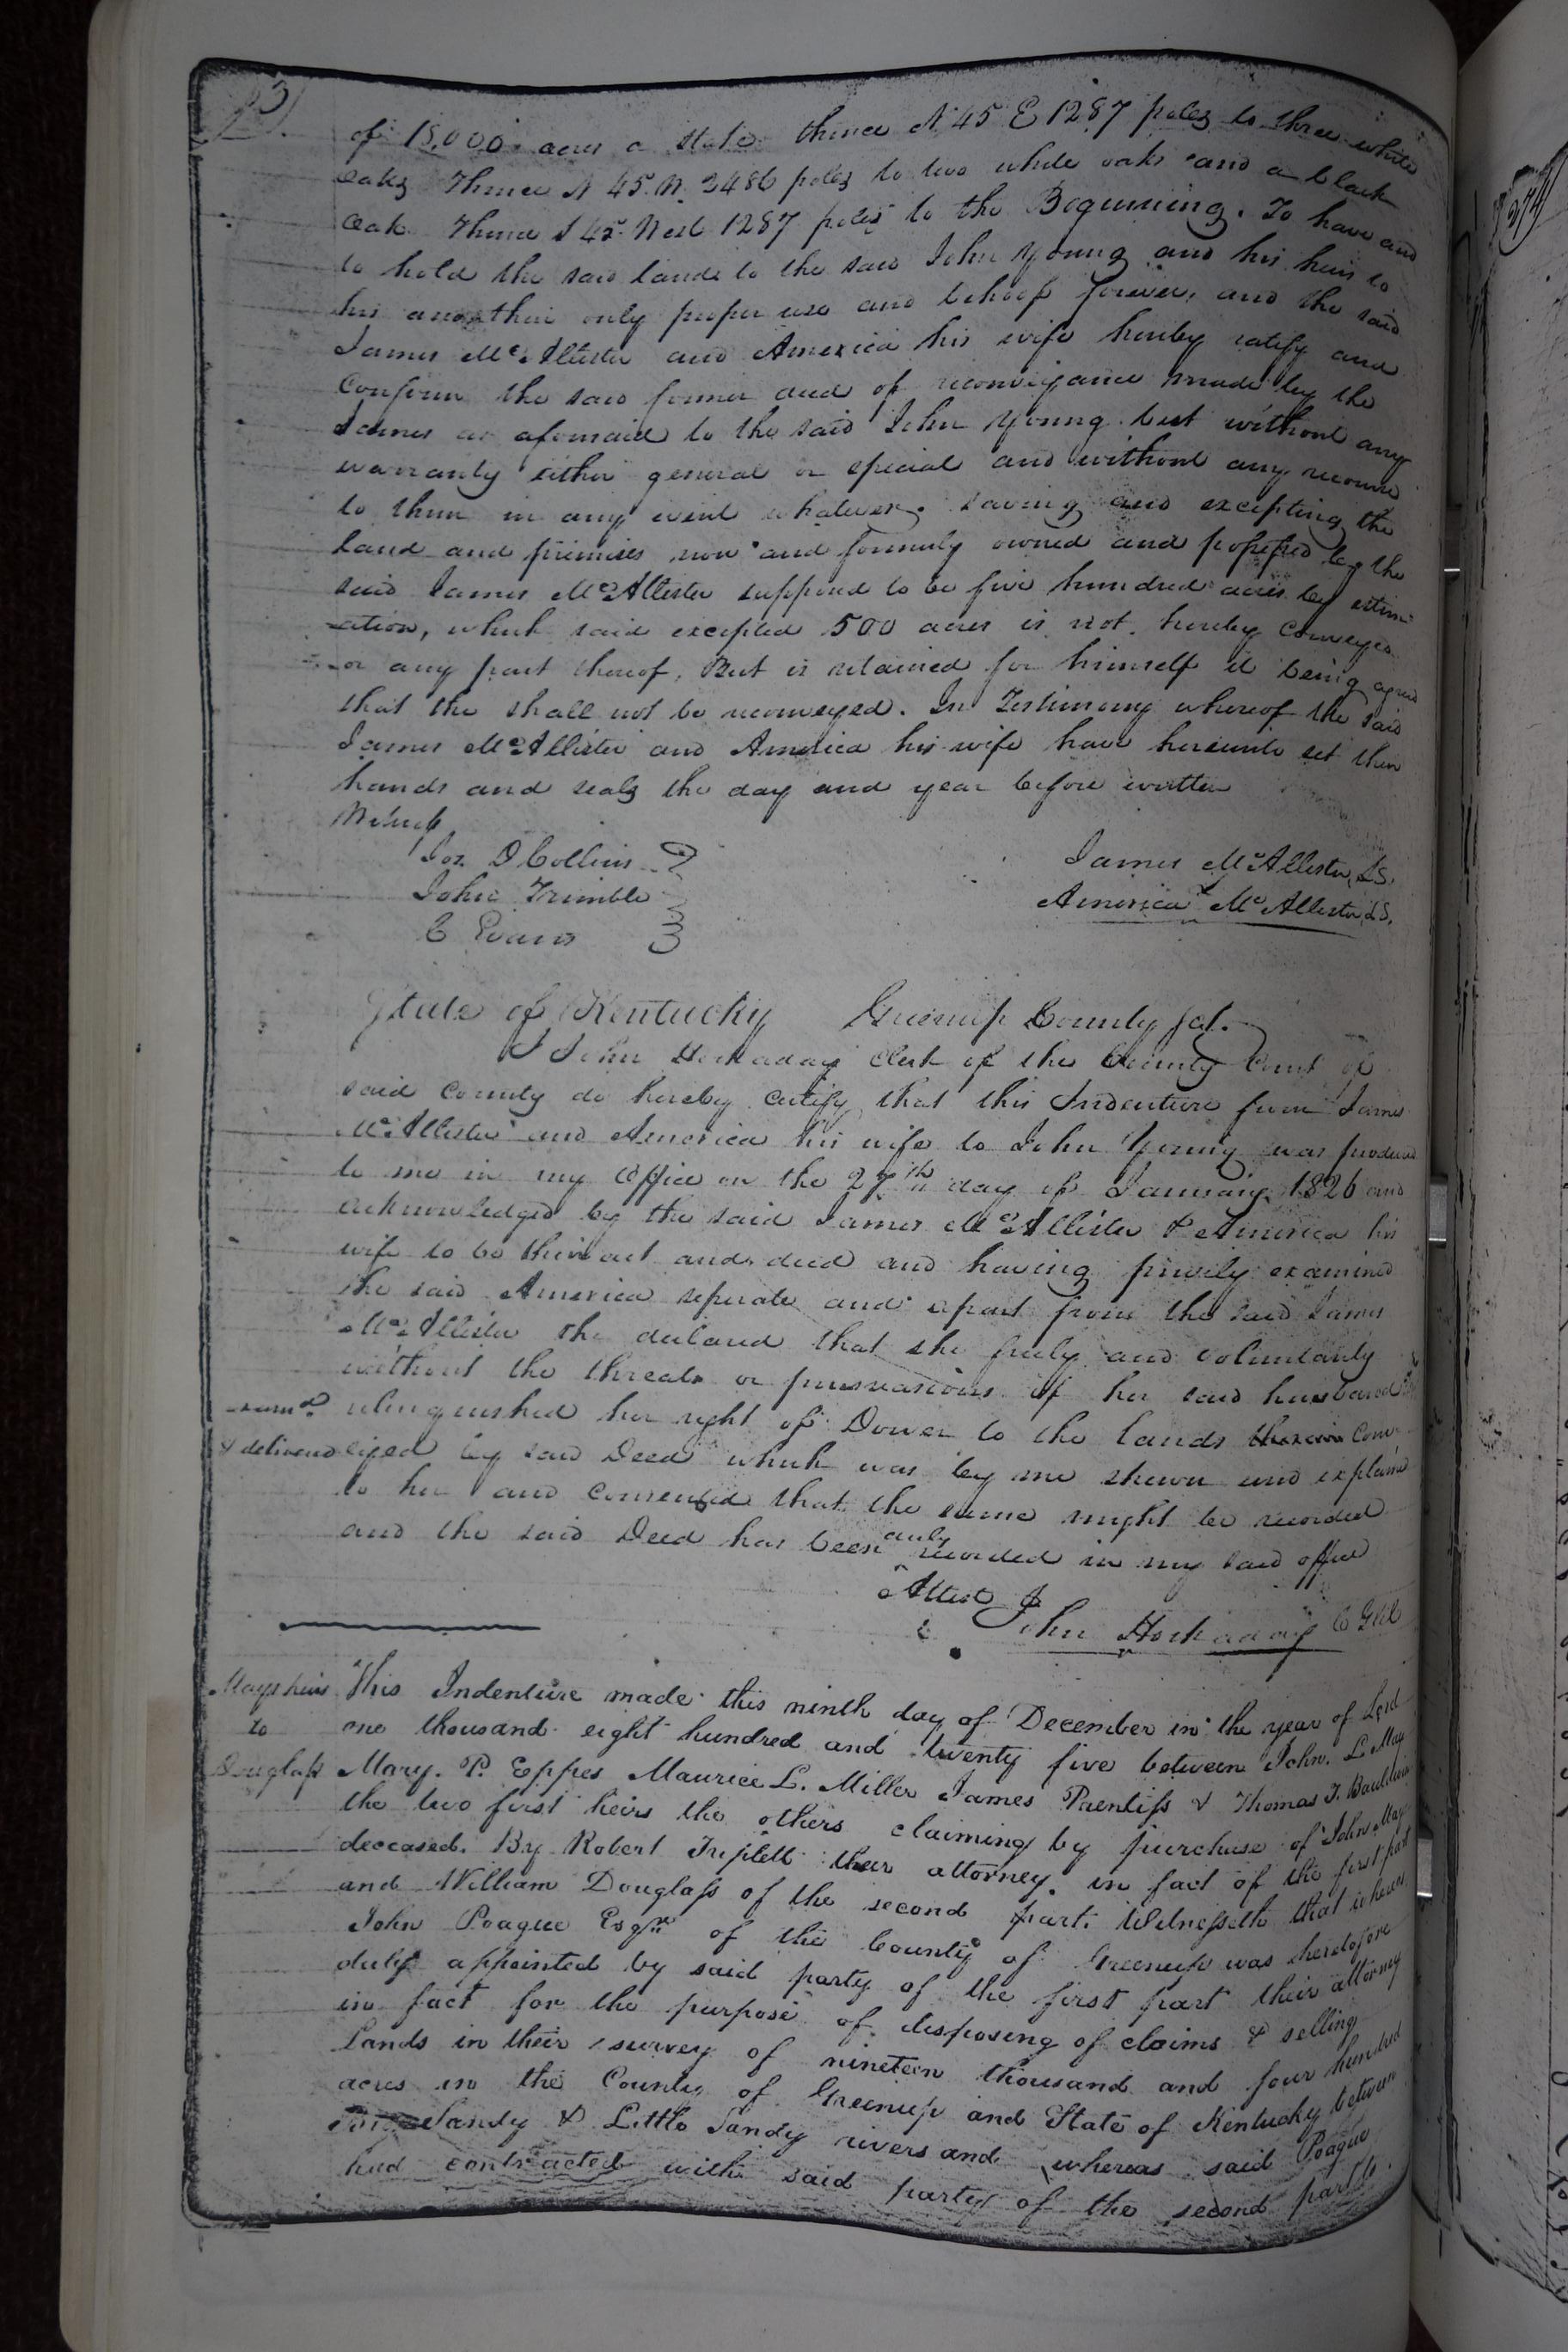 of 15,000 acres a stake thence N 45 E 1287 poles to three white
oaks Thence N 45. W. 2486 poles to two white oaks and a black
Oak. Thence S 45. West 1287 poles to the Beginning. To have and
to hold the said lands to the said John Young and his heirs to
his and their only proper use and behoof forever, and the said
James McAllister and America his wife hereby ratify and
Confirm the said former deed of reconveyance made by the
James as aforesaid to the said John Young but without any
warranty either general or special and without any recourse
to them in any event whatever. Saving and excepting the
land and premises now and formerly owned and possessed by the
said James McAllister supposed to be five hundred acres by estim
-ation, which said excepted 500 acres is not hereby Conveyed
or any part thereof, But is retained for himself it being agreed
that the shall not be reconveyed. In Testimony whereof the said
James McAllister and America his wife have hereunto set their
hands and seals the day and year before written
Witness
Jos. D Collins
John Trimble
C Evans
James McAllister, LS.
America McAllister, LS.
State of Kentucky Greenup County Sct.
I John Hockaday Clerk of the County Court of
said County do hereby Certify that this Indenture from James
McAllister and America his wife to John Young was produced
to me in my Office on the 27th day of January 1826 and
acknowledged by the said James McAllister & America his
wife to be their act and deed and having privily examined
the said America seperate and apart from the said James
McAllister She declared that she freely and voluntarily
without the threats or persuasions of her said husband
relinquished her right of Dower to the lands therein Conv-
& delivered eyed by said Deed which was by me shewn and explained
to her and consented that the same might be recorded
and the said Deed has been duly recorded in my said office
Attest
John Hockaday C G C C
Mays heirs This Indenture made this ninth day of December in the year of Lord
to one thousand eight hundred and twenty five between John. L. May
Douglass Mary. P. Eppes Maurice L. Miller James Prentiss & Thomas T. Bauldwin
the two first heirs the others claiming by purchase of John May
deceased. By Robert Triplett their attorney in fact of the first part
and William Douglass of the second part. Witnesseth that whereas
John Poague Esqr of the County of Greenup was heretofore
duly appointed by said party of the first part their attorney
in fact for the purpose of disposing of claims & selling
Lands in their survey of nineteen thousand and four hundred
acres in the County of Greenup and State of Kentucky between
Big Sandy & Little Sandy rivers and whereas said Poague
had contracted with said party of the second part to